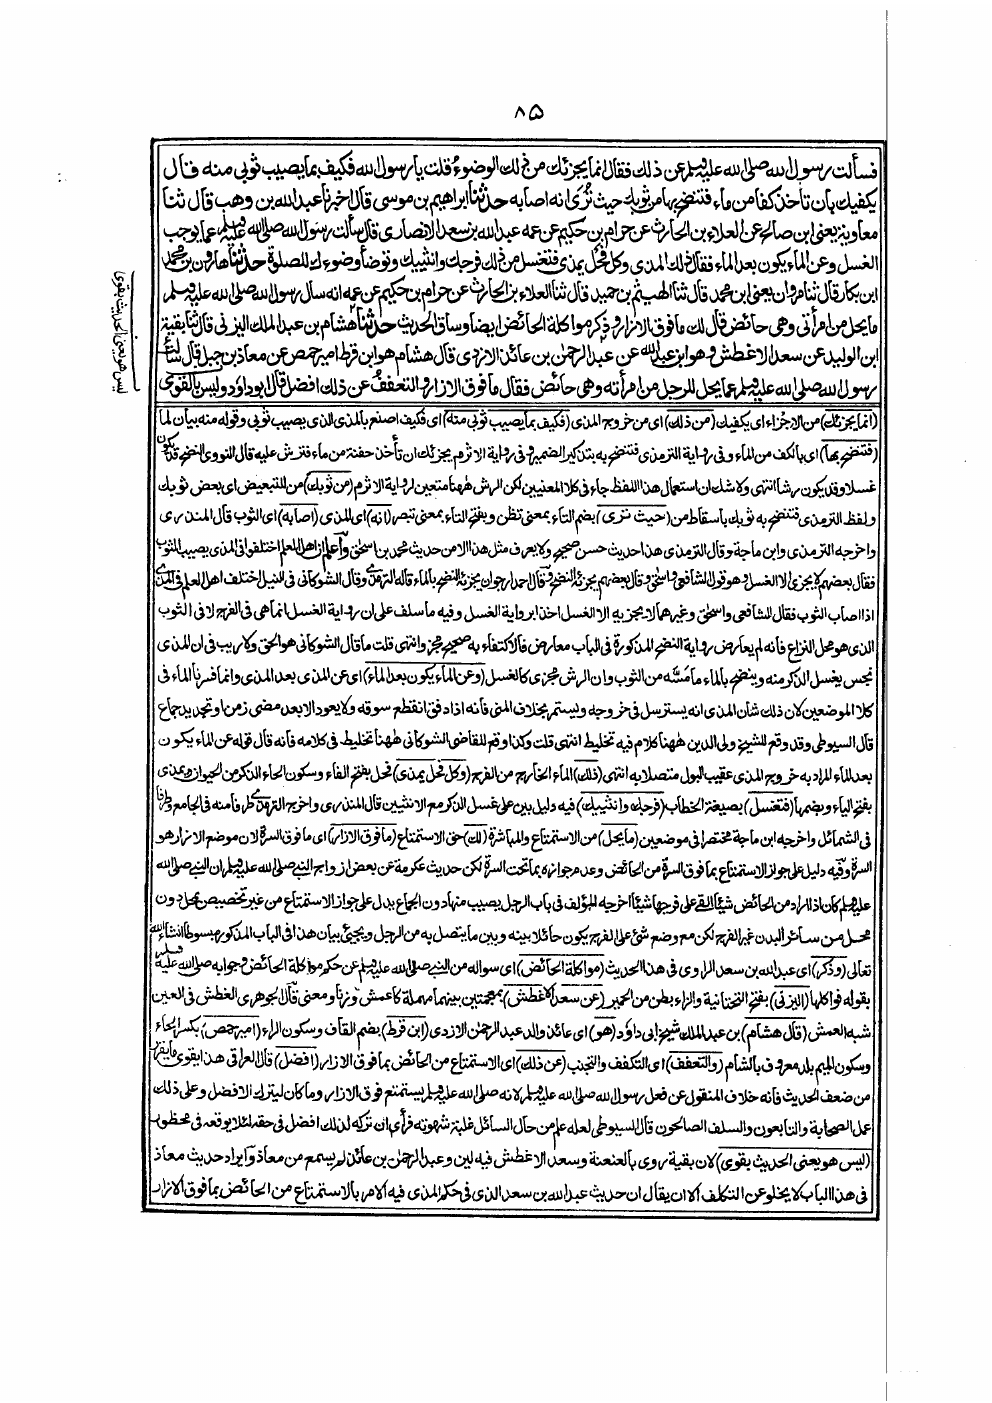 ٨٥
فسألت رسول الله صلى الله عليه وسلم عن ذلك فقال انما يجزئك من ذلك الوضوء قلت يا رسول الله فكيف بما يصيب ثوبى منه قال
يكفيك بان تأخذ كفا من ماء فتنضح بها من ثوبك حيث ترى انه اصابه حدثنا ابراهيم بن موسى قال اخبرنا عبد الله بن وهب قال ثنا
معاوية يعنى ابن صالح عن العلاء بن الحارث عن حرام بن حكيم عن عمه عبد الله بن سعد الانصارى قال سألت رسول الله صلى الله عليه وسلم عما يوجب
الغسل وعن الماء يكون بعد الماء فقال ذلك المذى وكل فحل يمذى فتغسل من ذلك فرجك وانثييك وتوضأ وضوءك للصلوة حدثنا هارون بن محمد
ابن بكار قال ثنا مروان يعنى ابن محمد قال ثنا الهيثم بن حميد قال ثنا العلاء بن الحارث عن حرام بن حكيم عن عمه انه سال رسول الله صلى الله عليه وسلم
ما يحل من امرأتى وهى حائض قال لك ما فوق الازار وذكر مواكلة الحائض ايضا وساق الحديث حدثنا هشام بن عبد الملك اليزنى قال ثنا بقية
ابن الوليد عن سعد الاغطش وهو ابن عبد الله عن عبد الرحمن بن عائذ الازدى قال هشام هو ابن قرط امير حمص عن معاذ بن جبل قال سألت
رسول الله صلى الله عليه وسلم عما يحل للرجل من امرأته وهى حائض فقال ما فوق الازار والتعفف عن ذلك افضل قال ابو داود وليس بالقوى
ليس هو يعنى الحديث بقوى
(انما يجزئك) من الاجزاء اى يكفيك (من ذلك) اى من خروج المذى (فكيف بما يصيب ثوبى منه) اى فكيف اصنع بالمذى الذى يصيب ثوبى وقوله منه بيان لما
(فتنضح بها) اى بالكف من الماء وفى رواية الترمذى فتنضح به بتذكير الضمير وفى رواية الاثرم يجزئك ان تأخذ حفنة من ماء فترش عليه قال النووى النضح قد يكون
غسلا وقد يكون رشا انتهى ولاشك ان استعمال هذا اللفظ جاء فى كلا المعنيين لكن الرش ههنا متعين لرواية الاثرم (من ثوبك) من للتبعيض اى بعض ثوبك
ولفظ الترمذى فتنضح به ثوبك باسقاط من (حيث ترى) بضم التاء بمعنى تظن وبفتح التاء بمعنى تبصر (انه) اى المذى (اصابه) اى الثوب قال المنذرى
واخرجه الترمذى وابن ماجة وقال الترمذى هذا حديث حسن صحيح ولا يعرف مثل هذا الا من حديث محمد بن اسحق واعلم ان اهل العلم اختلفوا فى المذى يصيب الثوب
فقال بعضهم لا يجزئ الا الغسل وهو قول الشافعى واسحق وقال بعضهم يجزئه النضح وقال احمد ارجو ان يجزئه النضح بالماء قاله الترمذى وقال الشوكانى فى النيل اختلف اهل العلم فى المذى
اذا اصاب الثوب فقال الشافعى واسحق وغيرهما لا يجزيه الا الغسل اخذا برواية الغسل وفيه ما سلف على ان رواية الغسل انما هى فى الفرج لا فى الثوب
الذى هو محل النزاع فانه لم يعارض رواية النضح المذكورة فى الباب معارض فالاكتفاء به صحيح مجز وانتهى قلت ما قال الشوكانى هو الحق ولاريب فى ان المذى
نجس يغسل الذكر منه وينضح بالماء ما مسه من الثوب وان الرش مجزى كالغسل (وعن الماء يكون بعد الماء) اى عن المذى بعد المذى وانما فسرنا الماء فى
كلا الموضعين لان ذلك شأن المذى انه يسترسل فى خروجه ويستمر بخلاف المنى فانه اذا دفق انقطع سوقه ولا يعود الا بعد مضى زمن او تجديد جماع
قال السيوطى وقد وقع للشيخ ولى الدين ههنا كلام فيه تخليط انتهى قلت وكذا وقع للقاضى الشوكانى ههنا تخليط فى كلامه فانه قال قوله عن الماء يكون
بعد الماء المراد به خروج المذى عقيب البول متصلا به انتهى (ذلك) الماء الخارج من الفرج (وكل فحل يمذى) فحل بفتح الفاء وسكون الحاء الذكر من الحيوان ويمذى
بفتح الياء وبضمها (فتغسل) بصيغة الخطاب (فرجك وانثييك) فيه دليل بين على غسل الذكر مع الانثيين قال المنذرى واخرج الترمذى طرفا منه فى الجامع وطرفا
فى الشمائل واخرجه ابن ماجة مختصرا فى موضعين (ما يحل) من الاستمتاع والمباشرة (لك) حق الاستمتاع (ما فوق الازار) اى ما فوق السرة لان موضع الازار هو
السرة وفيه دليل على جواز الاستمتاع بما فوق السرة من الحائض وعدم جوازه بما تحت السرة لكن حديث عكرمة عن بعض ازواج النبى صلى الله عليه وسلم ان النبى صلى الله
عليه وسلم كان اذا اراد من الحائض شيئا القى على فرجها شيئا اخرجه المؤلف فى باب الرجل يصيب منها دون الجماع يدل على جواز الاستمتاع من غير تخصيص بمحل دون
محل من سائر البدن غير الفرج لكن مع وضع شئ على الفرج يكون حائلا بينه وبين ما يتصل به من الرجل ويجيئ بيان هذا فى الباب المذكور مبسوطا انشاء الله
تعالى (وذكر) اى عبد الله بن سعد الراوى فى هذا الحديث (مواكلة الحائض) اى سواله من النبى صلى الله عليه وسلم عن حكم مواكلة الحائض وجوابه صلى الله عليه وسلم
بقوله فواكلها (اليزنى) بفتح التحتانية والزاء بطن من الحمير (عن سعد الاغطش) بمعجمتين بينهما مهملة كاعمش وزنا ومعنى قال الجوهرى الغطش فى العين
شبه العمش (قال هشام) بن عبد الملك شيخ ابى داود (هو) اى عائذ والد عبد الرحمن الازدى (ابن قرط) بضم القاف وسكون الراء (امير حمص) بكسر الحاء
وسكون الميم بلد معروف بالشام (والتعفف) اى التكفف والتجنب (عن ذلك) اى الاستمتاع من الحائض بما فوق الازار (افضل) قال العراقى هذا يقوى ما يقرر
من ضعف الحديث فانه خلاف المنقول عن فعل رسول الله صلى الله عليه وسلم لانه صلى الله عليه وسلم يستمتع فوق الازار وما كان ليترك الافضل وعلى ذلك
عمل الصحابة والتابعون والسلف الصالحون قال السيوطى لعله علم من حال السائل غلبة شهوته فرأى ان تركه لذلك افضل فى حقه لئلا يوقعه فى محظور
(ليس هو يعنى الحديث بقوى) لان بقية روى بالعنعنة وسعد الاغطش فيه لين وعبد الرحمن بن عائذ لم يسمع من معاذ وايراد حديث معاذ
فى هذا الباب لا يخلو عن التكلف الا ان يقال ان حديث عبد الله بن سعد الذى فى حكم المذى فيه الامر بالاستمتاع من الحائض بما فوق الازار